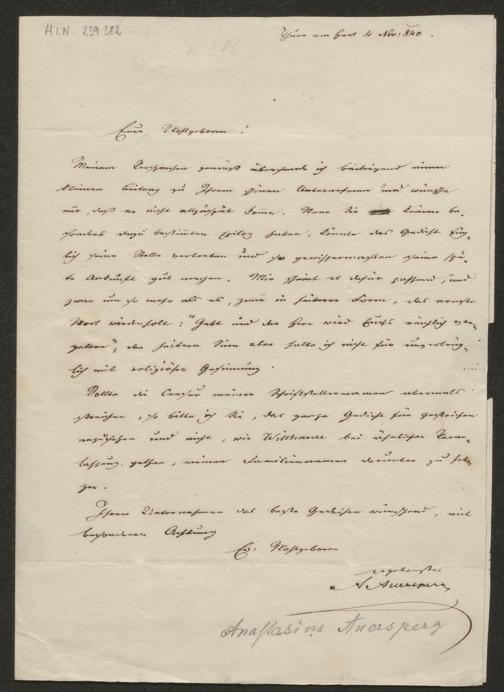 H.I.N. 239 382
Thurn am Hart 4 Nov: 840.
Euer Wohlgeboren!
Meinem Versprechen gemäß übersende ich beiliegend einen
kleinen Beitrag zu Ihrem schönen Unternehmen und wünsche
nur, daß er nicht allzuspät komme. Wenn Sie keinen be-
sonders dazu bestimmten Epilog haben, könnte das Gedicht füg-
lich seine Stelle vertreten und so gewissermaßen seine spä-
te Ankunft gut machen. Mir scheint es dafür passend, und
zwar um so mehr als es, zwar in heiterer Form, das ernste
Wort wiederholt: "Gebt und der Herr wird Euchs reichlich ver-
gelten"; den heitern Sinn aber halte ich nicht für unverträg-
lich mit religiöser Gesinnung.
Sollte die Censur meinen Schriftstellernamen abermals
streichen, so bitte ich Sie, das ganze Gedicht für gestrichen
anzusehen und nicht, wie Witthauer bei ähnlicher Veran-
lassung gethan, meinen Familiennamen darunter zu set-
zen.
Ihrem Unternehmen das beste Gedeihen wünschend, mit
besonderer Achtung
Ew: Wohlgeboren
ergebenster
A Auersperg
Anastasius Auersperg